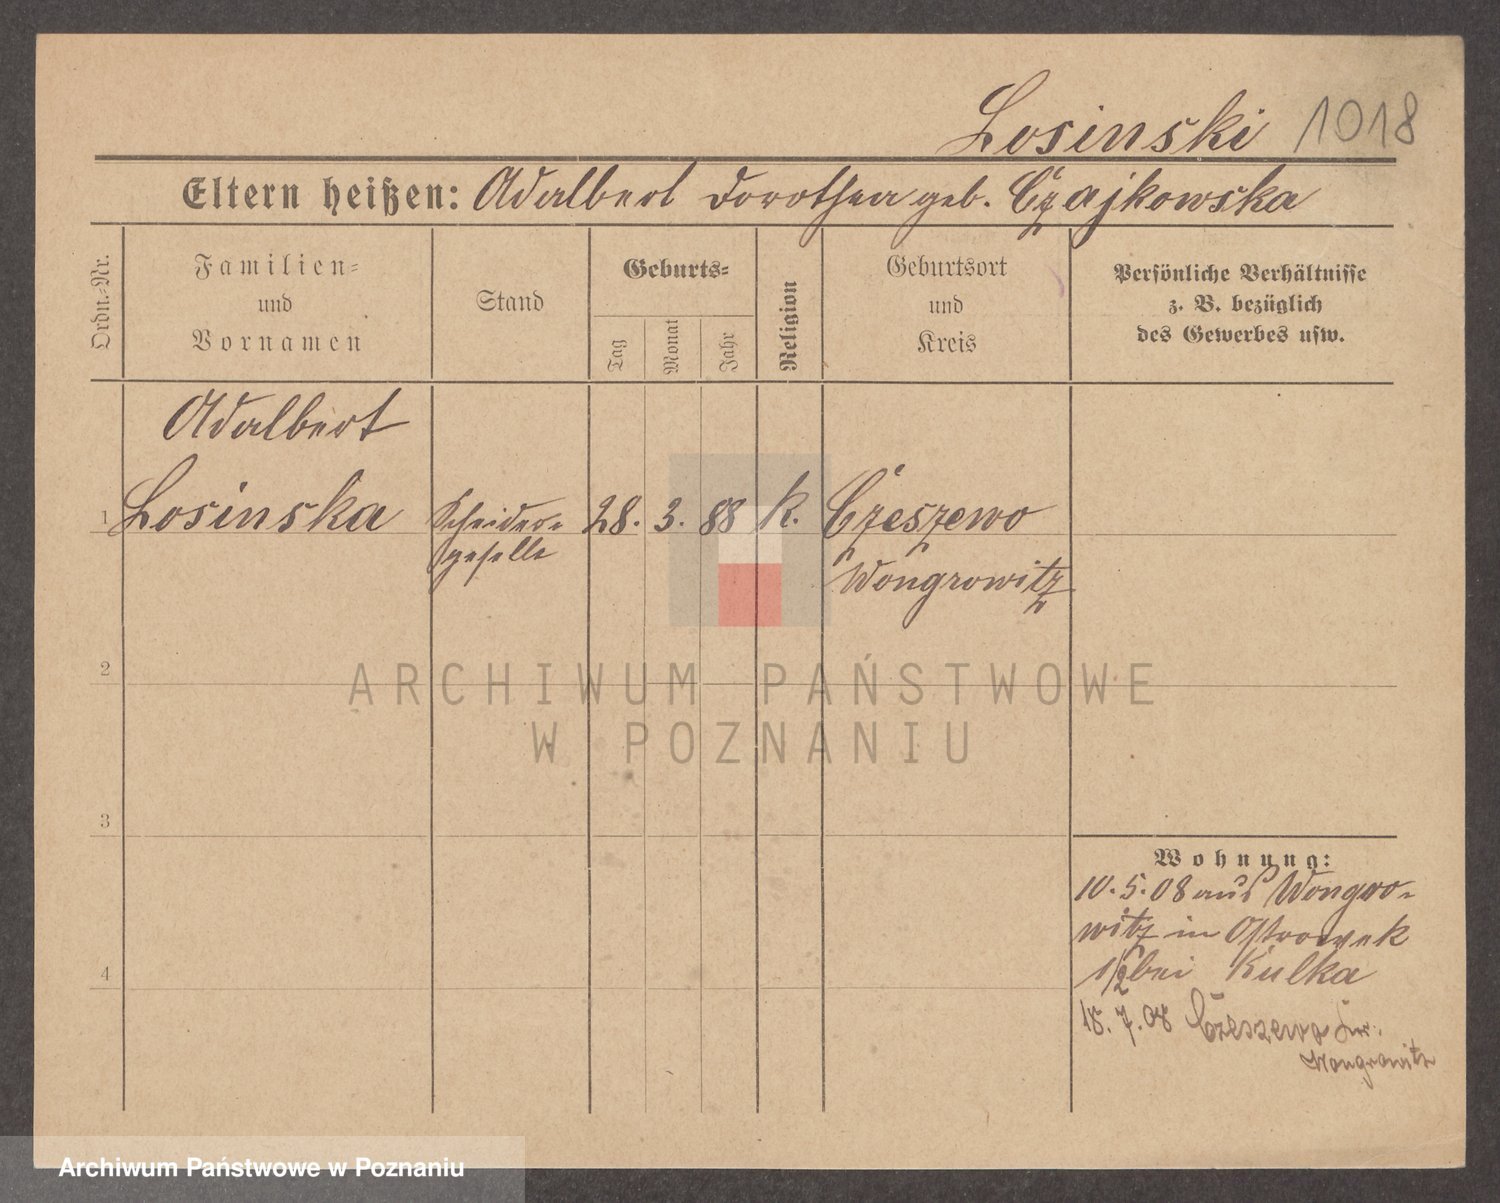 Losinski 1018
Eltern heißen: Adalbert Dorothea geb. Czajkowska
Ordn.-Nr.
Familien-
und
Vornamen
Stand
Geburts-
Tag
Monat
Jahr
Religion
Geburtsort
und
Kreis
Persönliche Verhältnisse
z. B. bezüglich
des Gewerbes usw.
Adalbert
1 Losinska Scheider- 28. 3. 88 k. Czeszewo
geselle Wongrowitz
2
ARCHIWUM PAŃSTWOWE
W POZNANIU
3
Wohnung:
10.5.08 aus Wongro-
witz in Ostrowek
1/2 bei Kulka
4
18.7.08 Czeszewo Kr.
Wongrowitz
Archiwum Państwowe w Poznaniu